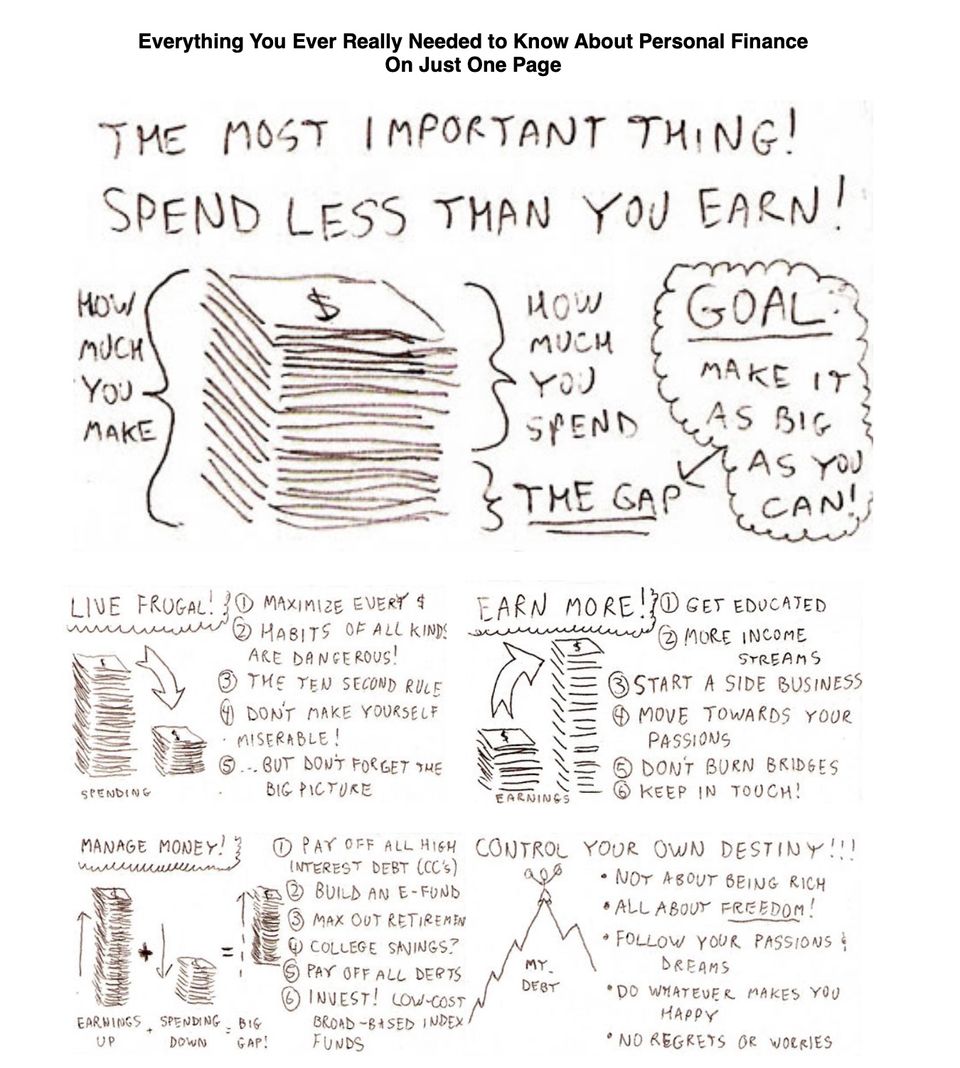 Everything You Ever Really Needed to Know About Personal Finance
On Just One Page
THE MOST IMPORTANT THING!
SPEND LESS THAN YOU EARN!
HOW
MUCH
YOU
MAKE
$
HOW
MUCH
YOU
SPEND
THE GAP
GOAL:
MAKE IT
AS BIG
AS YOU
CAN!
LIVE FRUGAL!
① MAXIMIZE EVERY $
② HABITS OF ALL KINDS
ARE DANGEROUS!
③ THE TEN SECOND RULE
④ DON'T MAKE YOURSELF
MISERABLE!
⑤ ... BUT DON'T FORGET THE
BIG PICTURE
$
$
SPENDING
EARN MORE!
① GET EDUCATED
② MORE INCOME
STREAMS
③ START A SIDE BUSINESS
④ MOVE TOWARDS YOUR
PASSIONS
⑤ DON'T BURN BRIDGES
⑥ KEEP IN TOUCH!
$
$
EARNINGS
MANAGE MONEY!
① PAY OFF ALL HIGH
INTEREST DEBT (CC'S)
② BUILD AN E-FUND
③ MAX OUT RETIREMEN
④ COLLEGE SAVINGS?
⑤ PAY OFF ALL DEBTS
⑥ INVEST! LOW-COST
BROAD-BASED INDEX
FUNDS
+ =
EARNINGS + SPENDING = BIG
UP DOWN GAP!
CONTROL YOUR OWN DESTINY!!!
• NOT ABOUT BEING RICH
• ALL ABOUT FREEDOM!
• FOLLOW YOUR PASSIONS &
DREAMS
• DO WHATEVER MAKES YOU
HAPPY
• NO REGRETS OR WORRIES
MY
DEBT